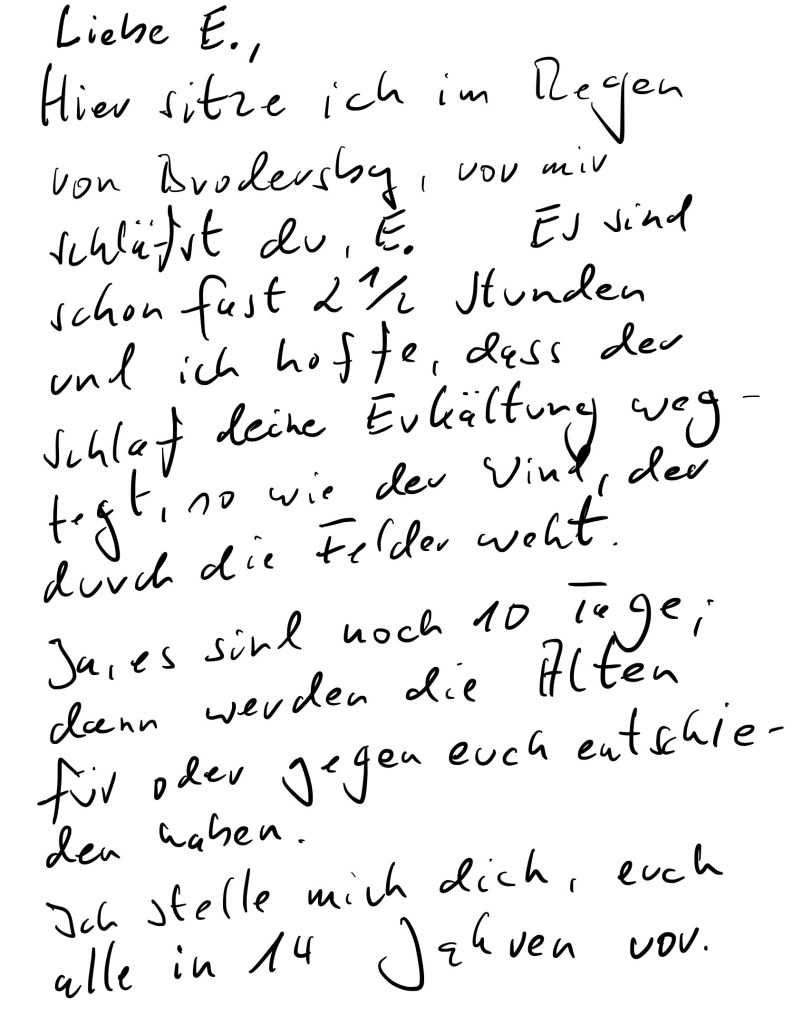 Liebe E.,
Hier sitze ich im Regen
von Brodersby, vor mir
schläfst du, E. Es sind
schon fast 2 1/2 Stunden
und ich hoffe, dass der
Schlaf deine Erkältung weg-
fegt, so wie der Wind, der
durch die Felder weht.
Ja, es sind noch 10 Tage,
dann werden die Alten
für oder gegen euch entschie-
den haben.
Ich stelle mich dich, euch
alle in 14 Jahren vor.